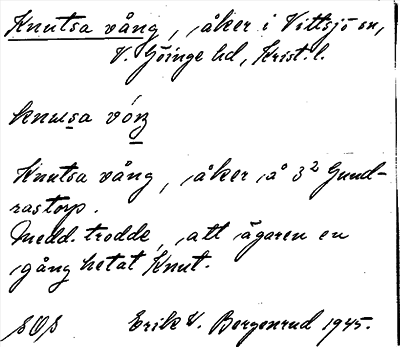 Knutsa vång, åker i Vittsjö sn,
V. Göinge hd, Krist. l.
Knutsa vång, åker å 3² Gund-
rastorp.
Medd. trodde, att ägaren en
gång hetat Knut.
SOS Erik V. Bergenrud 1945.